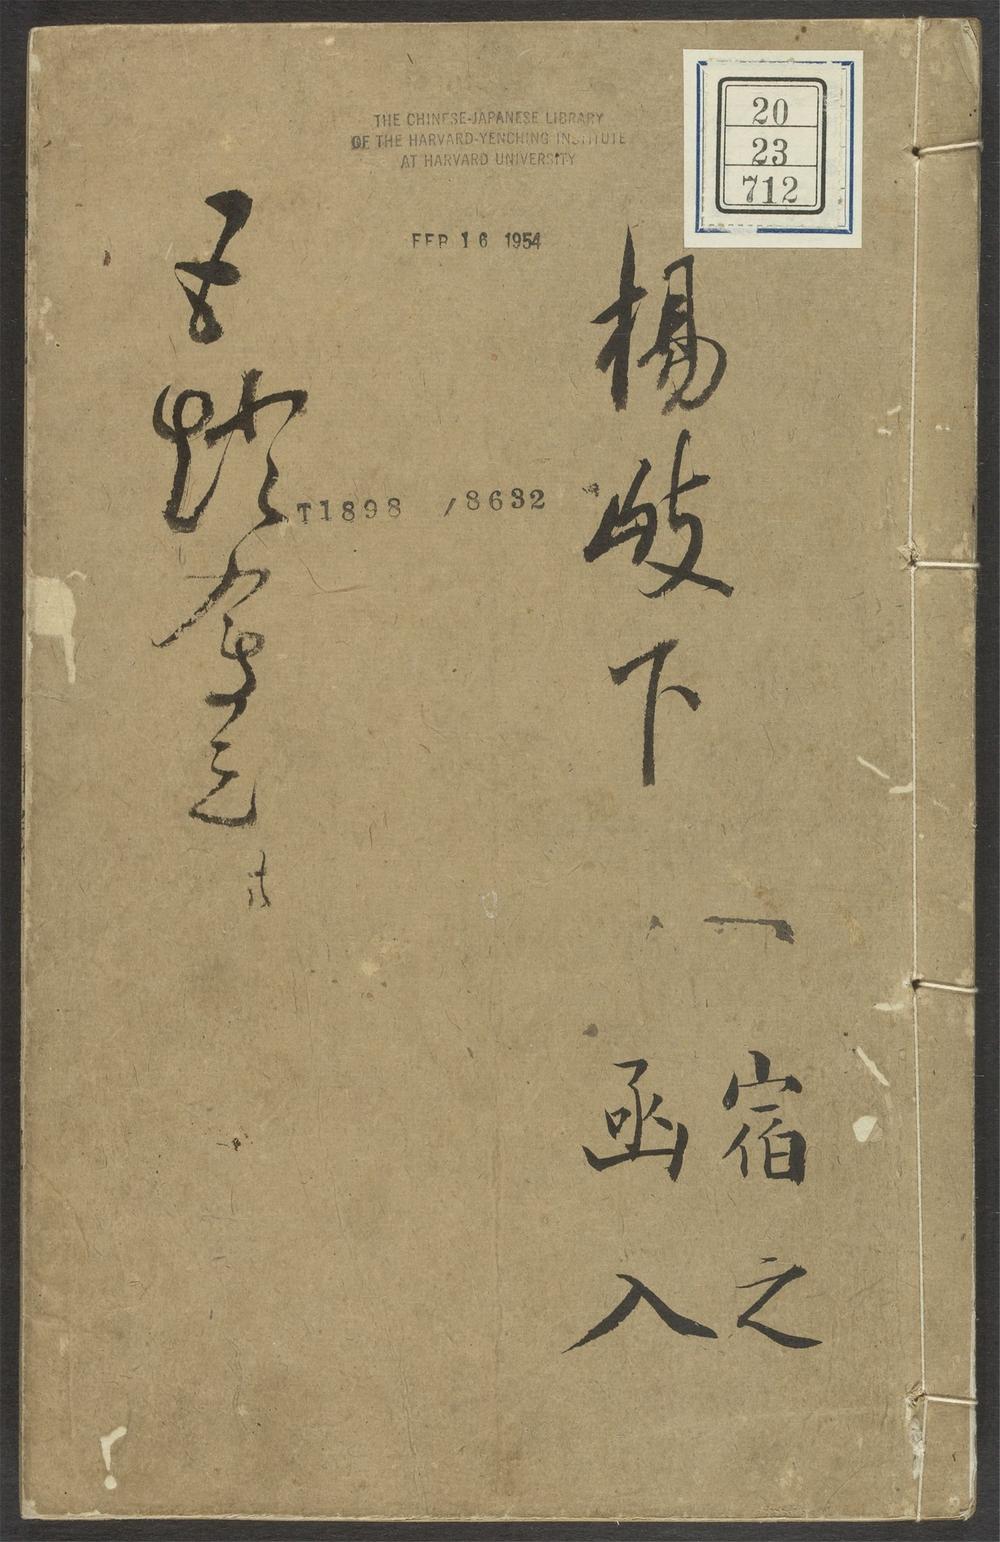 THE CHINESE-JAPANESE LIBRARY
OF THE HARVARD-YENCHING INSTITUTE
AT HARVARD UNIVERSITY
FEB 16 1954
20
23
712
楊岐下
一
宿之
函入
T1898 /8632
五燈會元